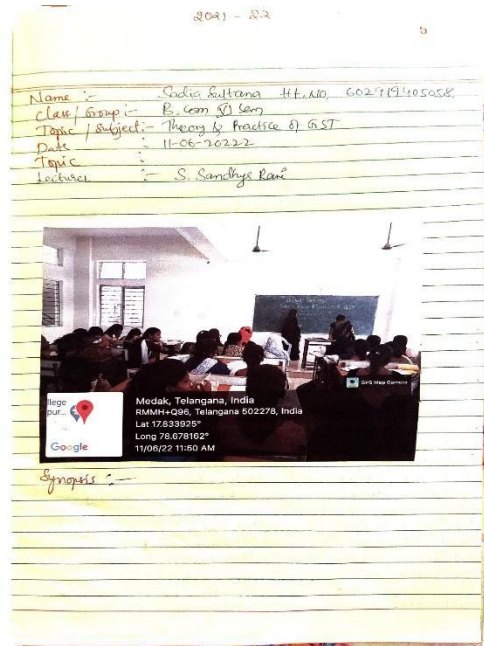 2021 - 22
5
Name :- Sadia Sultana H.t. No. 602919405058
Class / Group :- B. com VI Sem
Topic / Subject :- Theory & Practice of GST
Date : 11-06-20222
Topic :
Lecturer :- S. Sandhya Rani
llege
pur...
Google
GPS Map Camera
Medak, Telangana, India
RMMH+Q96, Telangana 502278, India
Lat 17.833925°
Long 78.678162°
11/06/22 11:50 AM
Synopsis :-